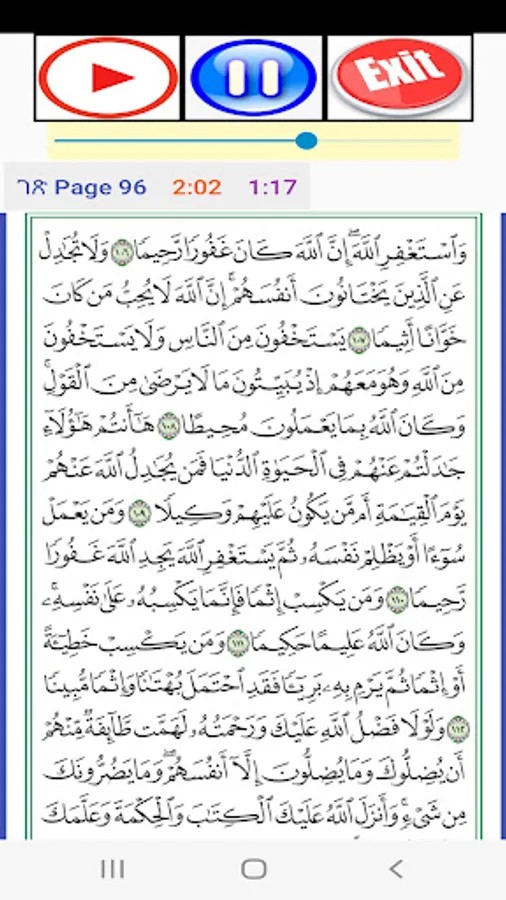 Exit
ገጽ Page 96 2:02 1:17
وَٱسْتَغْفِرِ ٱللَّهَۖ إِنَّ ٱللَّهَ كَانَ غَفُورًا رَّحِيمًا ١٠٦ وَلَا تُجَٰدِلْ
عَنِ ٱلَّذِينَ يَخْتَانُونَ أَنفُسَهُمْۚ إِنَّ ٱللَّهَ لَا يُحِبُّ مَن كَانَ
خَوَّانًا أَثِيمًا ١٠٧ يَسْتَخْفُونَ مِنَ ٱلنَّاسِ وَلَا يَسْتَخْفُونَ
مِنَ ٱللَّهِ وَهُوَ مَعَهُمْ إِذْ يُبَيِّتُونَ مَا لَا يَرْضَىٰ مِنَ ٱلْقَوْلِۚ
وَكَانَ ٱللَّهُ بِمَا يَعْمَلُونَ مُحِيطًا ١٠٨ هَٰٓأَنتُمْ هَٰٓؤُلَآءِ
جَٰدَلْتُمْ عَنْهُمْ فِى ٱلْحَيَوٰةِ ٱلدُّنْيَا فَمَن يُجَٰدِلُ ٱللَّهَ عَنْهُمْ
يَوْمَ ٱلْقِيَٰمَةِ أَم مَّن يَكُونُ عَلَيْهِمْ وَكِيلًا ١٠٩ وَمَن يَعْمَلْ
سُوٓءًا أَوْ يَظْلِمْ نَفْسَهُۥ ثُمَّ يَسْتَغْفِرِ ٱللَّهَ يَجِدِ ٱللَّهَ غَفُورًا
رَّحِيمًا ١١٠ وَمَن يَكْسِبْ إِثْمًا فَإِنَّمَا يَكْسِبُهُۥ عَلَىٰ نَفْسِهِۦۚ
وَكَانَ ٱللَّهُ عَلِيمًا حَكِيمًا ١١١ وَمَن يَكْسِبْ خَطِيٓـَٔةً
أَوْ إِثْمًا ثُمَّ يَرْمِ بِهِۦ بَرِيٓـًٔا فَقَدِ ٱحْتَمَلَ بُهْتَٰنًا وَإِثْمًا مُّبِينًا
١١٢ وَلَوْلَا فَضْلُ ٱللَّهِ عَلَيْكَ وَرَحْمَتُهُۥ لَهَمَّت طَّآئِفَةٌ مِّنْهُمْ
أَن يُضِلُّوكَ وَمَا يُضِلُّونَ إِلَّآ أَنفُسَهُمْۖ وَمَا يَضُرُّونَكَ
مِن شَىْءٍۚ وَأَنزَلَ ٱللَّهُ عَلَيْكَ ٱلْكِتَٰبَ وَٱلْحِكْمَةَ وَعَلَّمَكَ